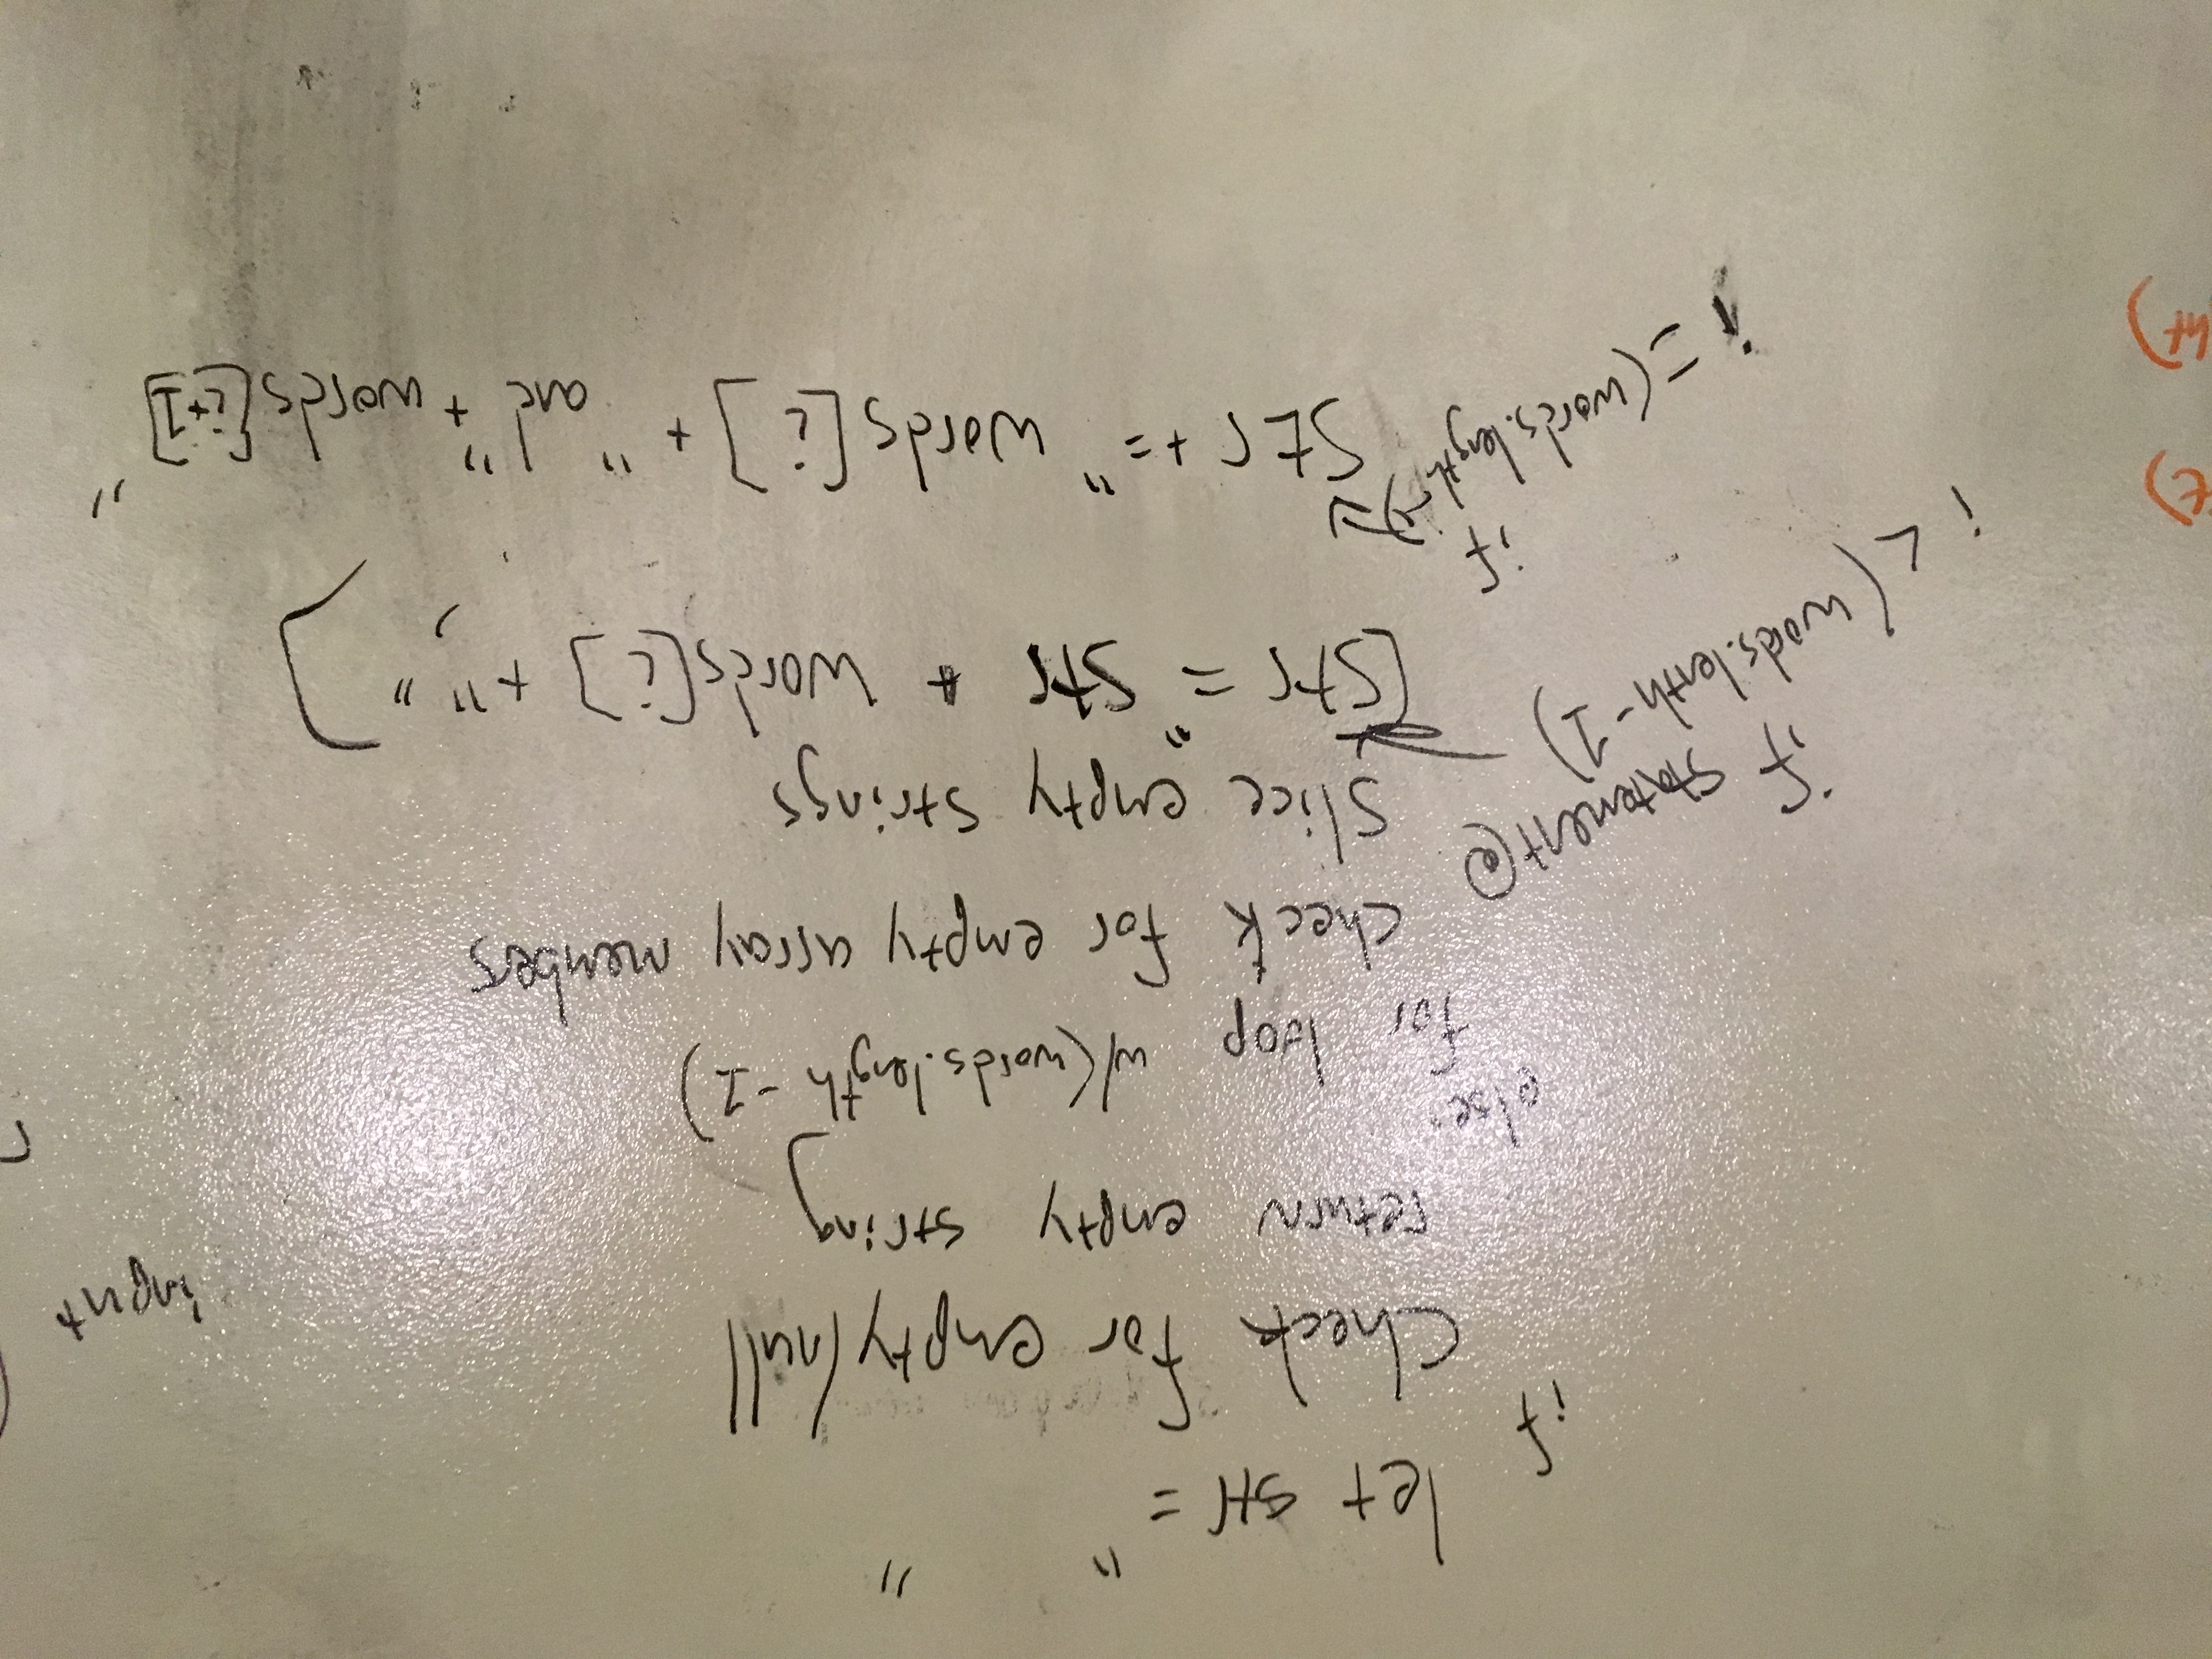 let str = " "
if
Check for empty/null
input
return empty string
else
for loop w/(words.length - 1)
check for empty array members
if statement @
slice empty strings
i < (words.lenth - 1)
[Str = " Str + words[i] + ", "]
if
i = (words.length - 1)
Str += " words[i] + " and " + words[i+1] "
t)
ht)